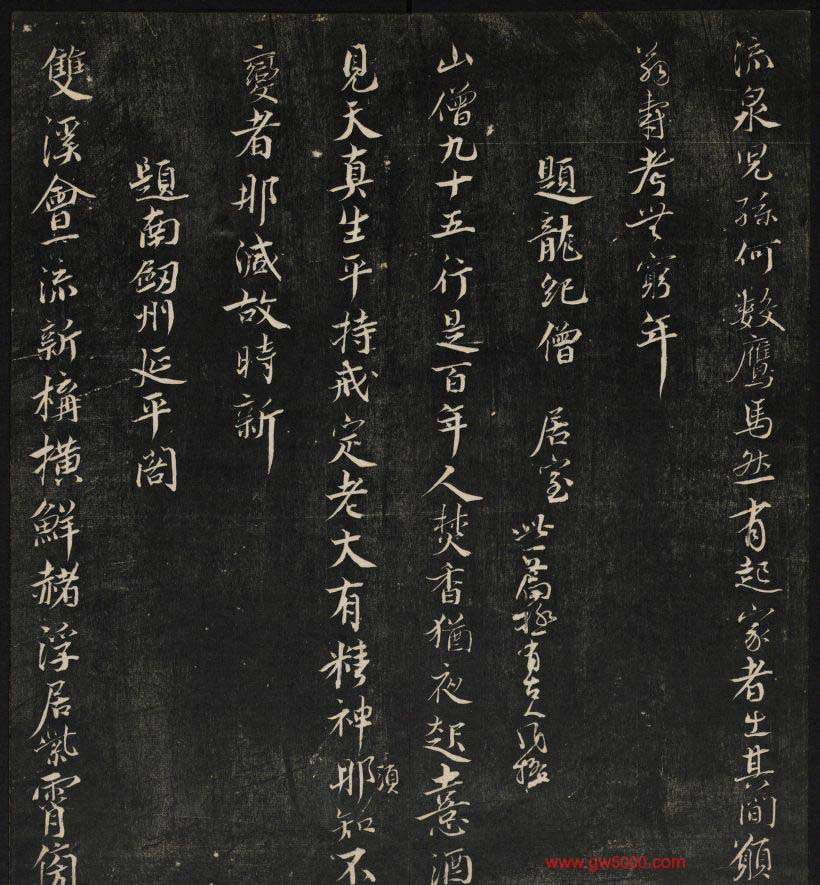 流泉兒孫何數鷹馬然有起家者出其間願
翁壽考無窮年
題龍紀僧 居室 此一篇極有古人風格
山僧九十五行是百年人焚香猶夜起憙酒
見天真生平持戒定老大有精神那知不
須
變者那減故時新
題南劔州延平閣
雙溪會一流新構橫鮮赭浮居紫霄傍
www.gw5000.com